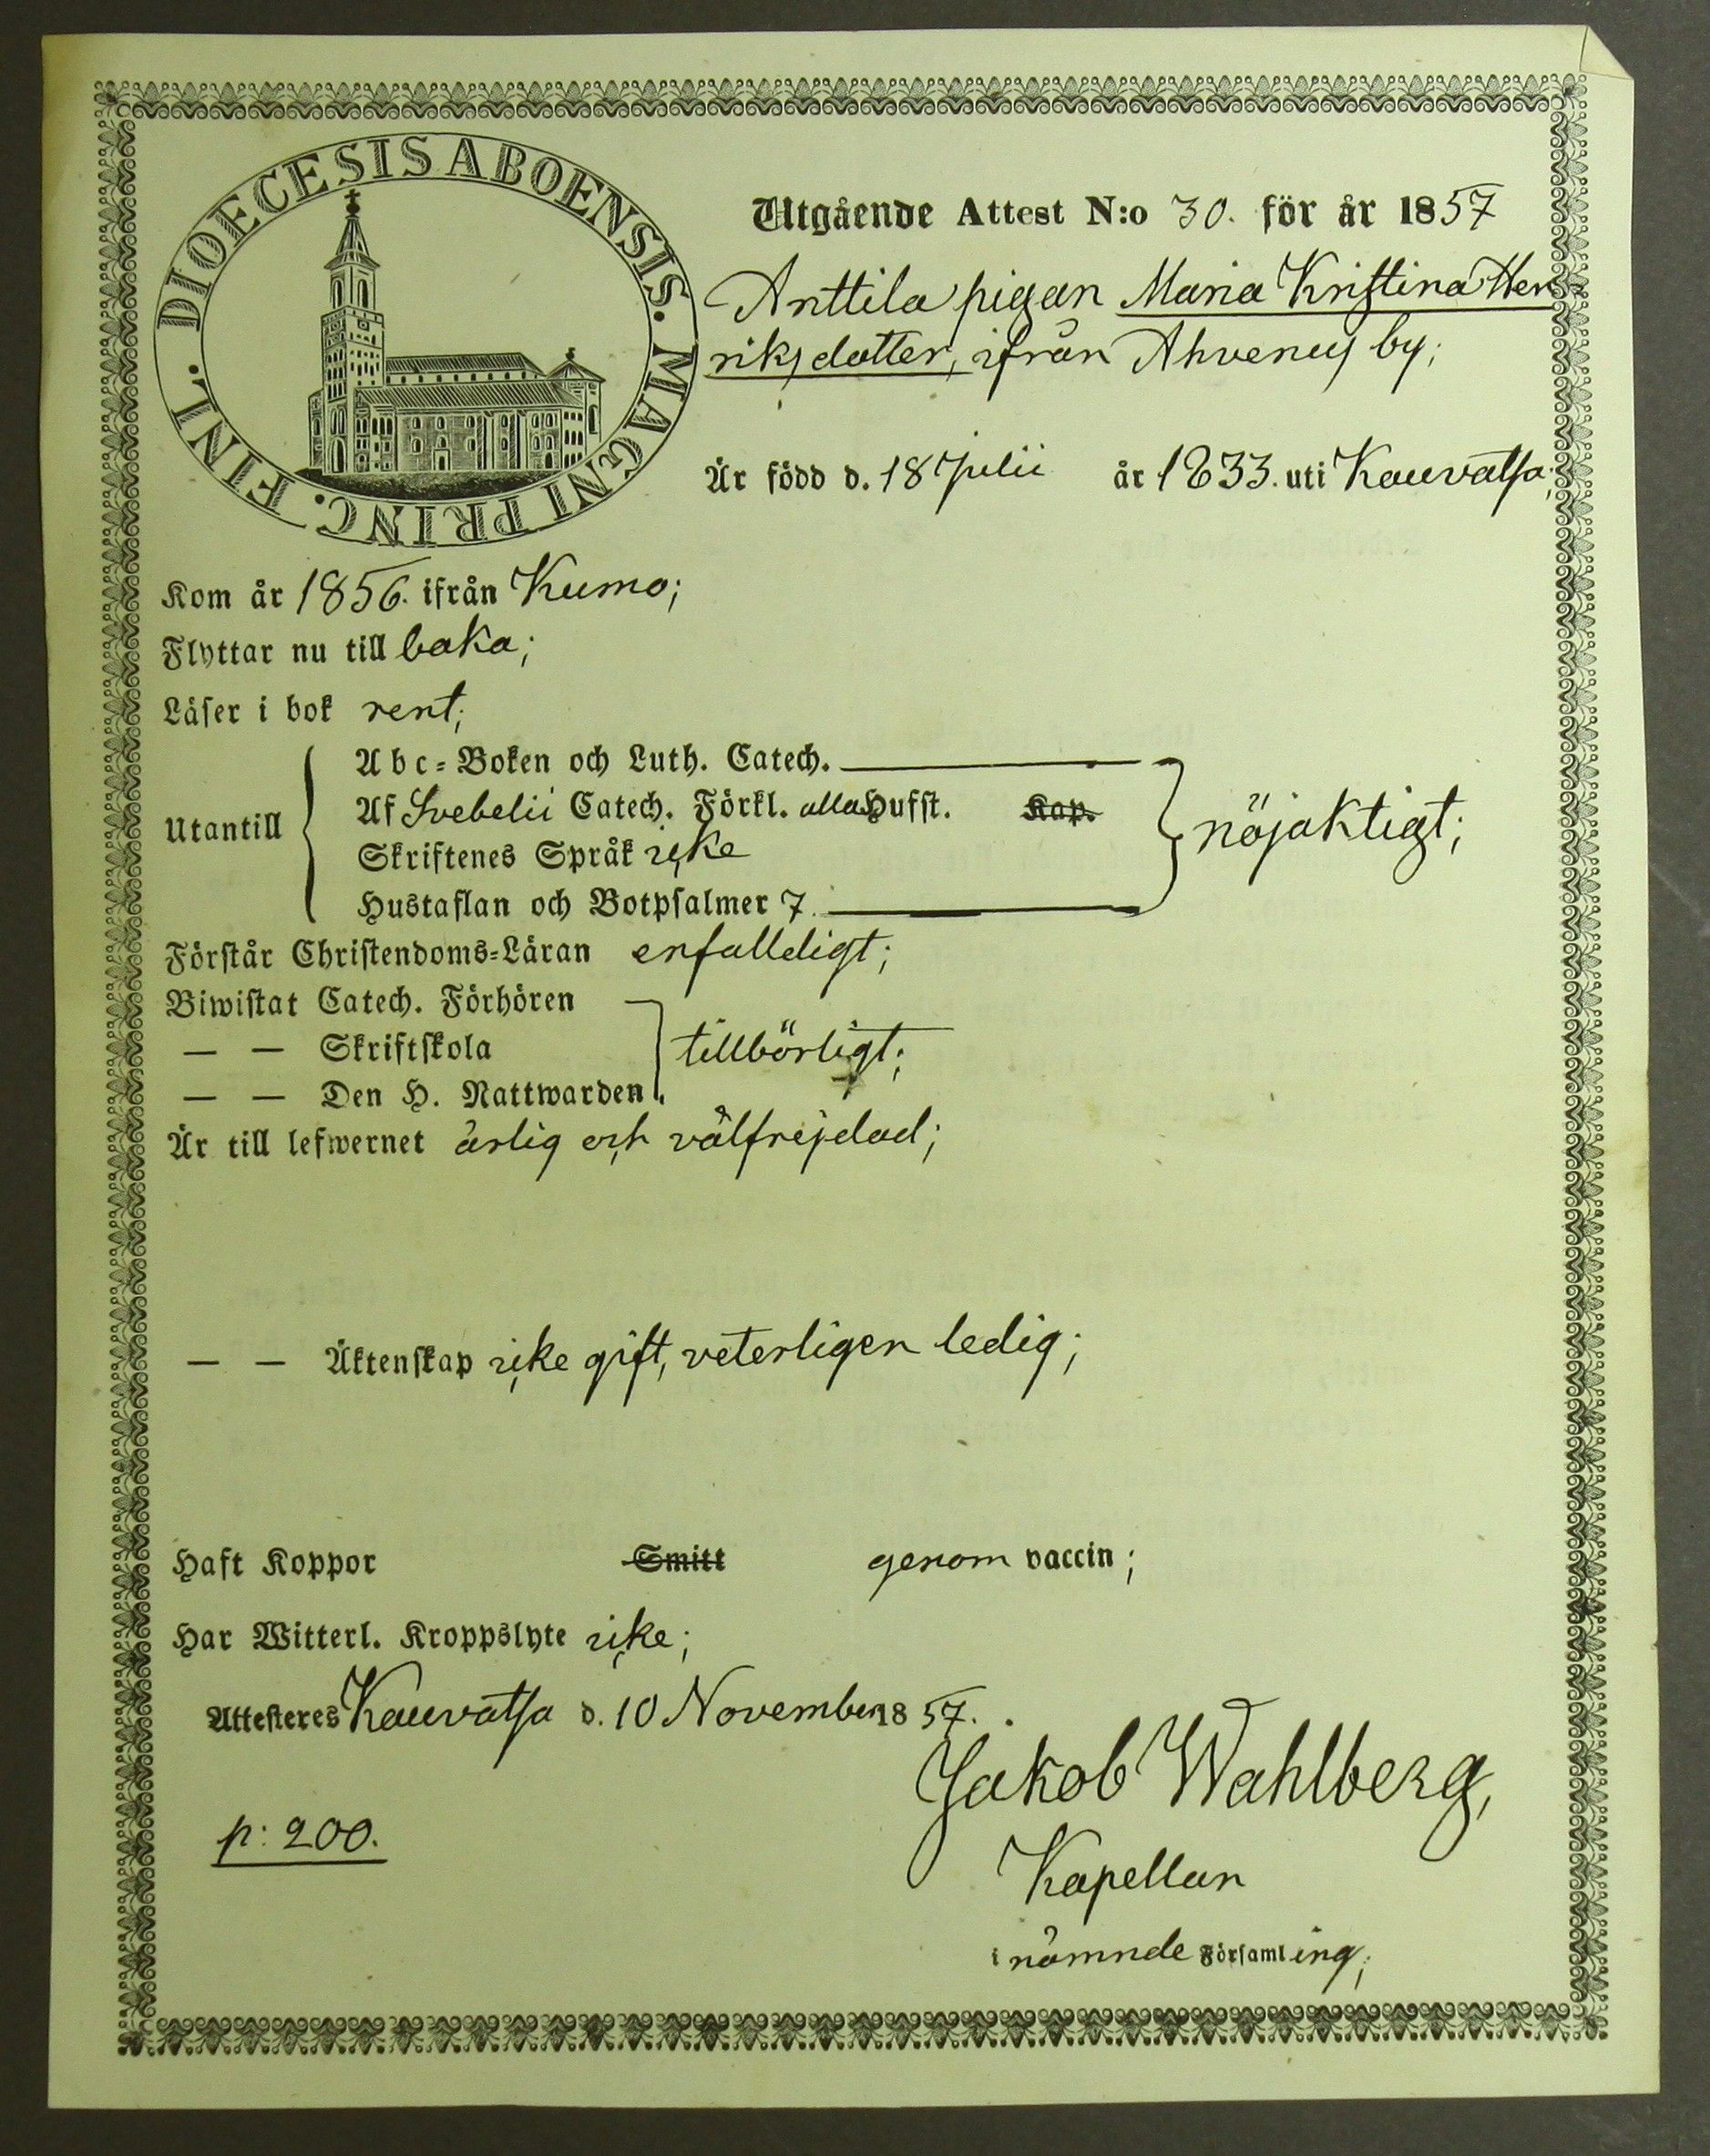 DIOECESIS ABOENSIS. MAGNI PRINC. FINL.
Utgående Attest N:o 30. för år 1857
Anttila pigan Maria Kristina Hen-
riksdotter, ifrån Ahvenus by;
Är född d. 18 Julii år 1833. uti Kauvatsa;
Kom år 1856. ifrån Kumo;
Flyttar nu till baka;
Läser i bok rent;
Utantill
Abc-Boken och Luth. Catech.
Af Svebelii Catech. Förkl. alla Hufst. Kap.
Skriftenes Språk icke
Hustaflan och Botpsalmer 7.
nöjaktigt;
Förstår Christendoms-Läran enfalldigt;
Biwistat Catech. Förhören
— — Skriftskola
— — Den H. Nattwarden
tillbörligt;
Är till lefwernet ärlig och välfrejdad;
— — Äktenskap icke gift, veterligen ledig;
Haft Koppor Smitt genom vaccin;
Har Witterl. Kroppslyte icke;
Attesteres Kauvatsa d. 10 November 1857.
Jakob Wahlberg,
p: 200.
Kapellan
i nämnde Församling;